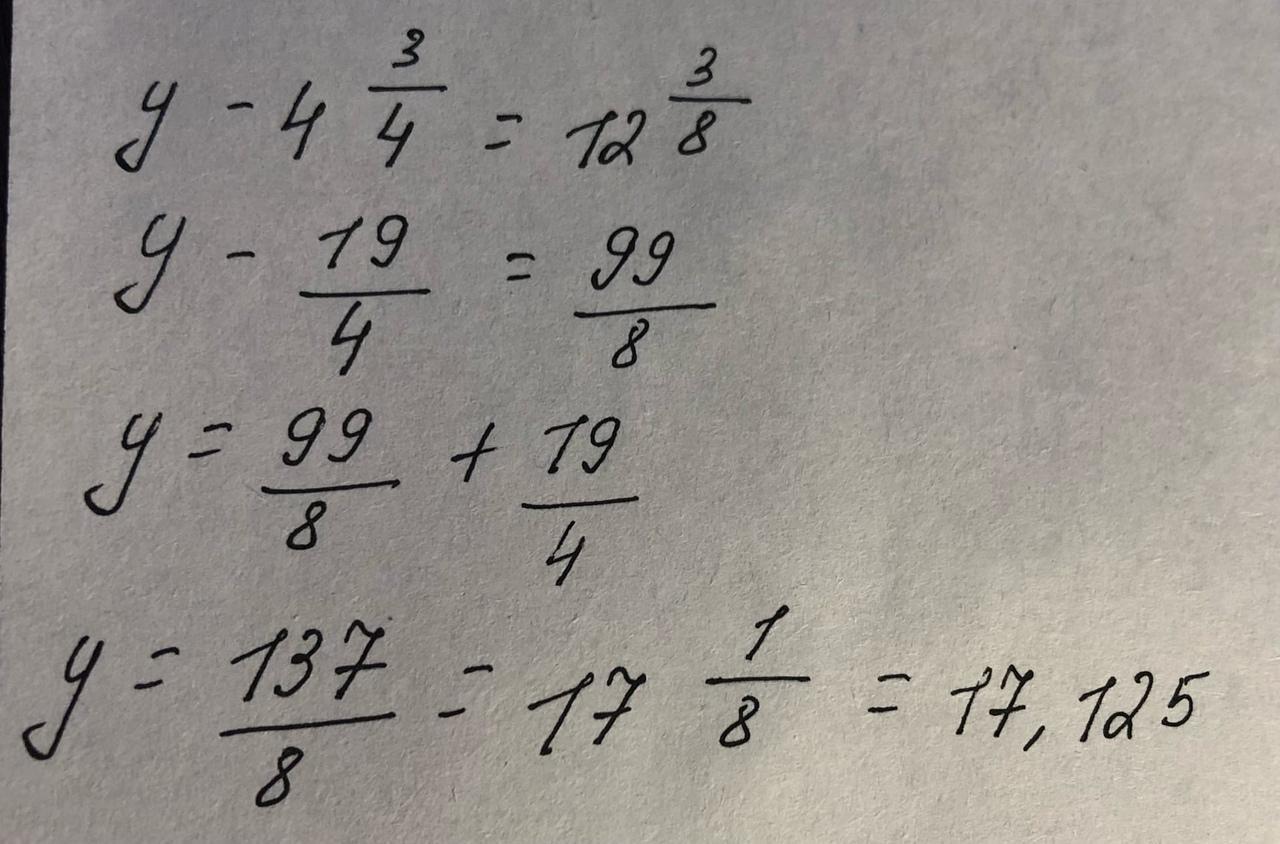 y - 4 3/4 = 12 3/8
y - 19/4 = 99/8
y = 99/8 + 19/4
y = 137/8 = 17 1/8 = 17,125